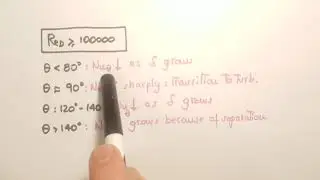 Re_D ≥ 100000
θ < 80° : Nu_θ ↓ as δ grows
θ ≈ 90° : sharply : transition to turb.
θ : 120° - 140° ↓ as δ grows
θ > 140° : grows because of separation